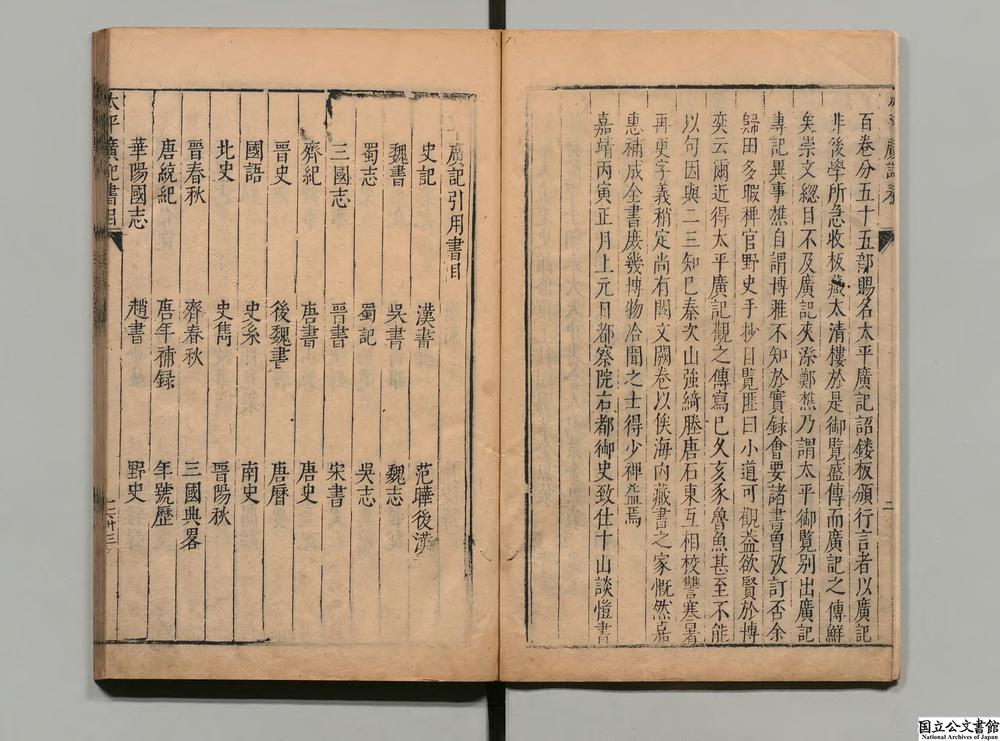 百卷分五十五部賜名太平廣記詔鏤板頒行言者以廣記
非後學所急收板藏太清樓於是御覽盛傳而廣記之傳鮮
矣崇文總目不及廣記夾漈鄭樵乃謂太平御覽別出廣記
專記異事樵自謂博雅不知於實錄會要諸書曾攷訂否余
歸田多暇稗官野史手抄目覽匪曰小道可觀益欲賢於博
奕云爾近得太平廣記觀之傳寫已久亥豕魯魚甚至不能
以句因與二三知己秦次山強綺塍唐石東互相校讐寒暑
再更字義稍定尚有闕文闕卷以俟海內藏書之家慨然嘉
惠補成全書庶幾博物洽聞之士得少裨益焉
嘉靖丙寅正月上元日都察院右都御史致仕十山談愷書
二
廣記引用書目
史記 漢書 范曄後漢
魏書 吳書 魏志
蜀志 蜀記 吳志
三國志 晉書 宋書
齊紀 唐書 唐史
晉史 後魏書 唐曆
國語 史系 南史
北史 史雋 晉陽秋
晉春秋 齊春秋 三國典畧
唐統紀 唐年補録 年號歷
華陽國志 趙書 野史
太平廣記書目
国立公文書館
National Archives of Japan